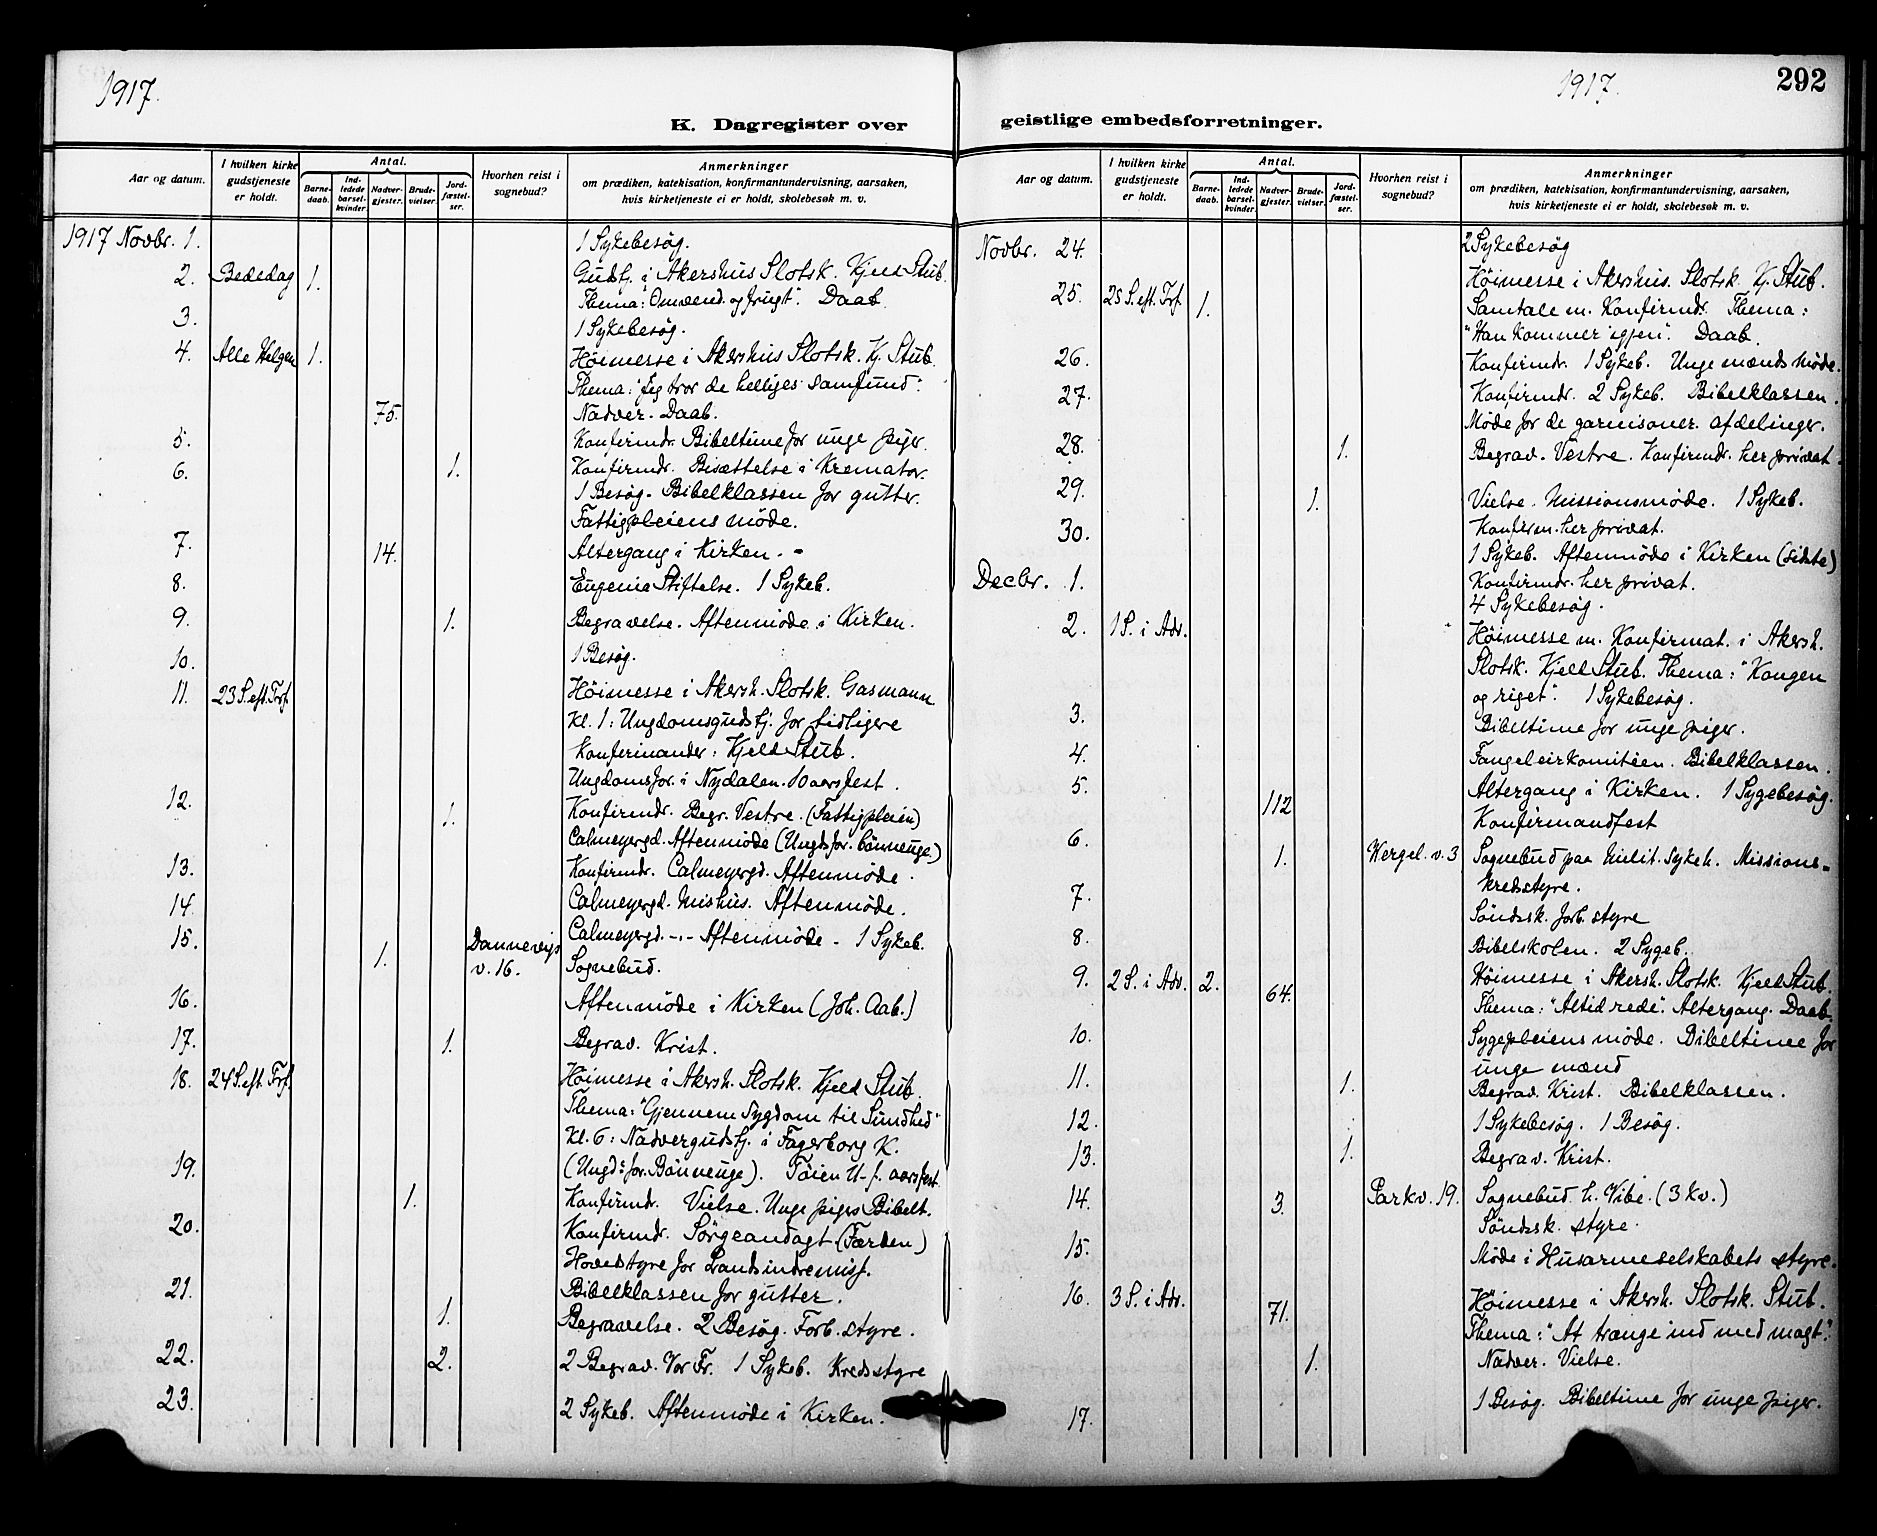 1917.
K. Dagregister over
Aar og datum.
I hvilken kirke gudstjeneste er holdt.
Antal.
Barnedaab.
Indledede barselkvinder.
Nadvergjester.
Brudevielser.
Jordfæstelser.
Hvorhen reist i sognebud?
Anmerkninger
om prædiken, katekisation, konfirmantundervisning, aarsaken,
hvis kirketjeneste ei er holdt, skolebesøk m. v.
1917 Novbr. 1. 1 Sykebesøg.
2. Bededag 1. Gudstj. i Akershus Slotsk. Kjeld Stub.
Thema: "Omvend. og frugt". Daab
3. 1 Sykebesøg.
4. Alle Helgen 1. Høimesse i Akershus Slotsk. Kj. Stub.
Thema: "Jeg tror de helliges samfund".
75. Nadver. Daab.
5. Konfirmdr. Bibeltime for unge piger.
6. 1. Konfirmdr. Bisættelse i Kremator.
1 Besøg. Bibelklassen for gutter.
Fattigpleiens møde.
7. 14. Altergang i Kirken.
8. Eugenia Stiftelse. 1 Sykeb.
9. 1. Begravelse. Aftenmøde i Kirken.
10. 1 Besøg.
11. 23 S. eft. Trf. Høimesse i Akersh. Slotsk. Gasmann
Kl. 1: Ungdomsgudstj. for tidligere
konfirmander: Kjeld Stub.
Ungdomsfor. i Nydalen. 10 aarsfest.
12. 1. Konfirmdr. Begr. Vestre. (Fattigpleien)
Calmeyergd. Aftenmøde (Ungdsfor. bønneuge.)
13. Konfirmdr. Calmeyergd. Aftenmøde.
14. Calmeyergd. Mishus. Aftenmøde.
15. Calmeyergd. -"- Aftenmøde. 1 Sykeb.
1. Dannevigs v. 16. Sognebud.
16. Aftenmøde i Kirken (Joh. Aab.)
17. 1. Begrav. Krist.
18. 24 S. eft. Trf. Høimesse i Akersh. Slotsk. Kjeld Stub.
Thema: "Gjennem Sygdom til Sundhed"
Kl. 6: Nadvergudstj. i Fagerborg K.
(Ungd: for. Bønneuge). Tøien U. f. aarsfest.
19. 1. Konfirmdr. Vielse. Unge pigers Bibelt.
20. Konfirmdr. Sørgeandagt (Færden)
Hovedstyre for Landsindremisj.
21. Bibelklassen for gutter.
1. Begravelse. 2 Besøg. Forb. styre.
22. 2. 2 Begrav. Vor Fr. 1 Sykeb. Kredsstyre
23. 2 Sykeb. Aftenmøde i Kirken.
1917.
292
geistlige embedsforretninger.
Aar og datum.
I hvilken kirke gudstjeneste er holdt.
Antal.
Barnedaab.
Indledede barselkvinder.
Nadvergjester.
Brudevielser.
Jordfæstelser.
Hvorhen reist i sognebud?
Anmerkninger
om prædiken, katekisation, konfirmantundervisning, aarsaken,
hvis kirketjeneste ei er holdt, skolebesøk m. v.
Novbr. 24. 2 Sykebesøg
25. 25 S. eft. Trf. 1. Høimesse i Akershus. Slotsk. Kj. Stub.
Samtale m. Konfirmdr. Thema:
"Han kommer igjen". Daab.
26. Konfirmdr. 1 Sykeb. Unge mænds møde.
27. Konfirmdr. 2 Sykeb. Bibelklassen.
Møde for de garnisoner. afdelinger.
28. 1. Begrav. Vestre. Konfirmdr. her privat.
29. 1. Vielse. Missionsmøde. 1 Sykeb.
Konfirm. her privat.
30. 1 Sykeb. Aftenmøde i Kirken (sidste)
Konfirmdr. her privat.
Decbr. 1. 4 Sykebesøg.
2. 1 S. i Adv. Høimesse m. Konfirmat. i Akersh.
Slotsk. Kjeld Stub. Thema: "Kongen
og riget". 1 Sykebesøg.
3. Bibeltime for unge piger.
4. Fangeleirkomitéen. Bibelklassen.
5. 112 Altergang i Kirken. 1 Sygebesøg.
Konfirmandfest
6. 1. Wergel. v. 3 Sognebud paa Milit. sykeh. Missions-
kredsstyre.
7. Søndsk. forb. styre
8. Bibelskolen. 2 Sygeb.
9. 2 S. i Adv. 2. 64. Høimesse i Akersh. Slotsk. Kjeld Stub.
Thema: "Altid rede". Altergang. Daab.
10. Sygepleiens møde. Bibeltime for
unge mænd
11. 1. Begrav. Krist. Bibelklassen.
12. 1 Sykebesøg. 1 Besøg.
13. 1. Begrav. Krist.
14. 3. Parkv. 19. Sognebud h. Vibe. (3 kv.)
Søndsk. styre.
15. Møde i Husarmeselskabets styre.
16. 3 S. i Adv. 71. Høimesse i Akersh. Slotsk. Stub.
Thema: "At trænge ind med magt".
1. Nadver. Vielse.
17. 1 Besøg. Bibeltime for unge piger.